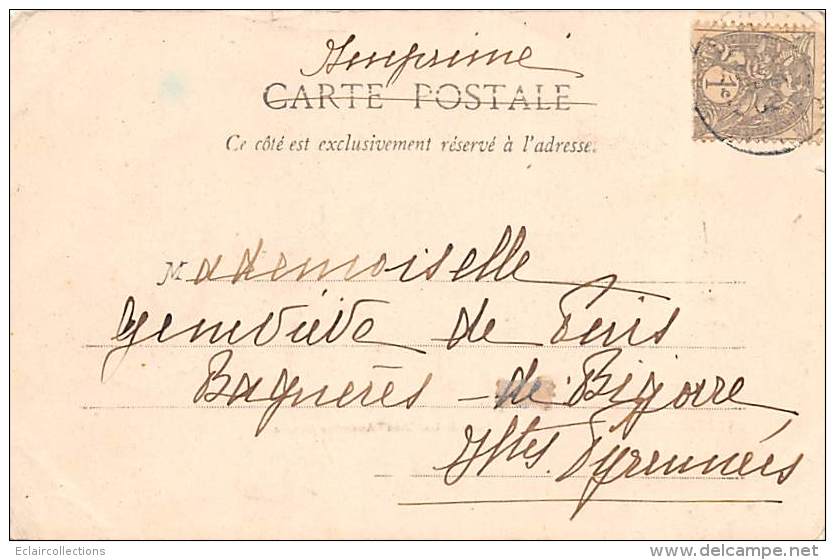 Imprimé
CARTE POSTALE
Ce côté est exclusivement réservé à l'adresse.
Mademoiselle
Geneviève de
Bagnères-de-Bigorre
Htes Pyrennées
Eclaircollections
delcampe.net